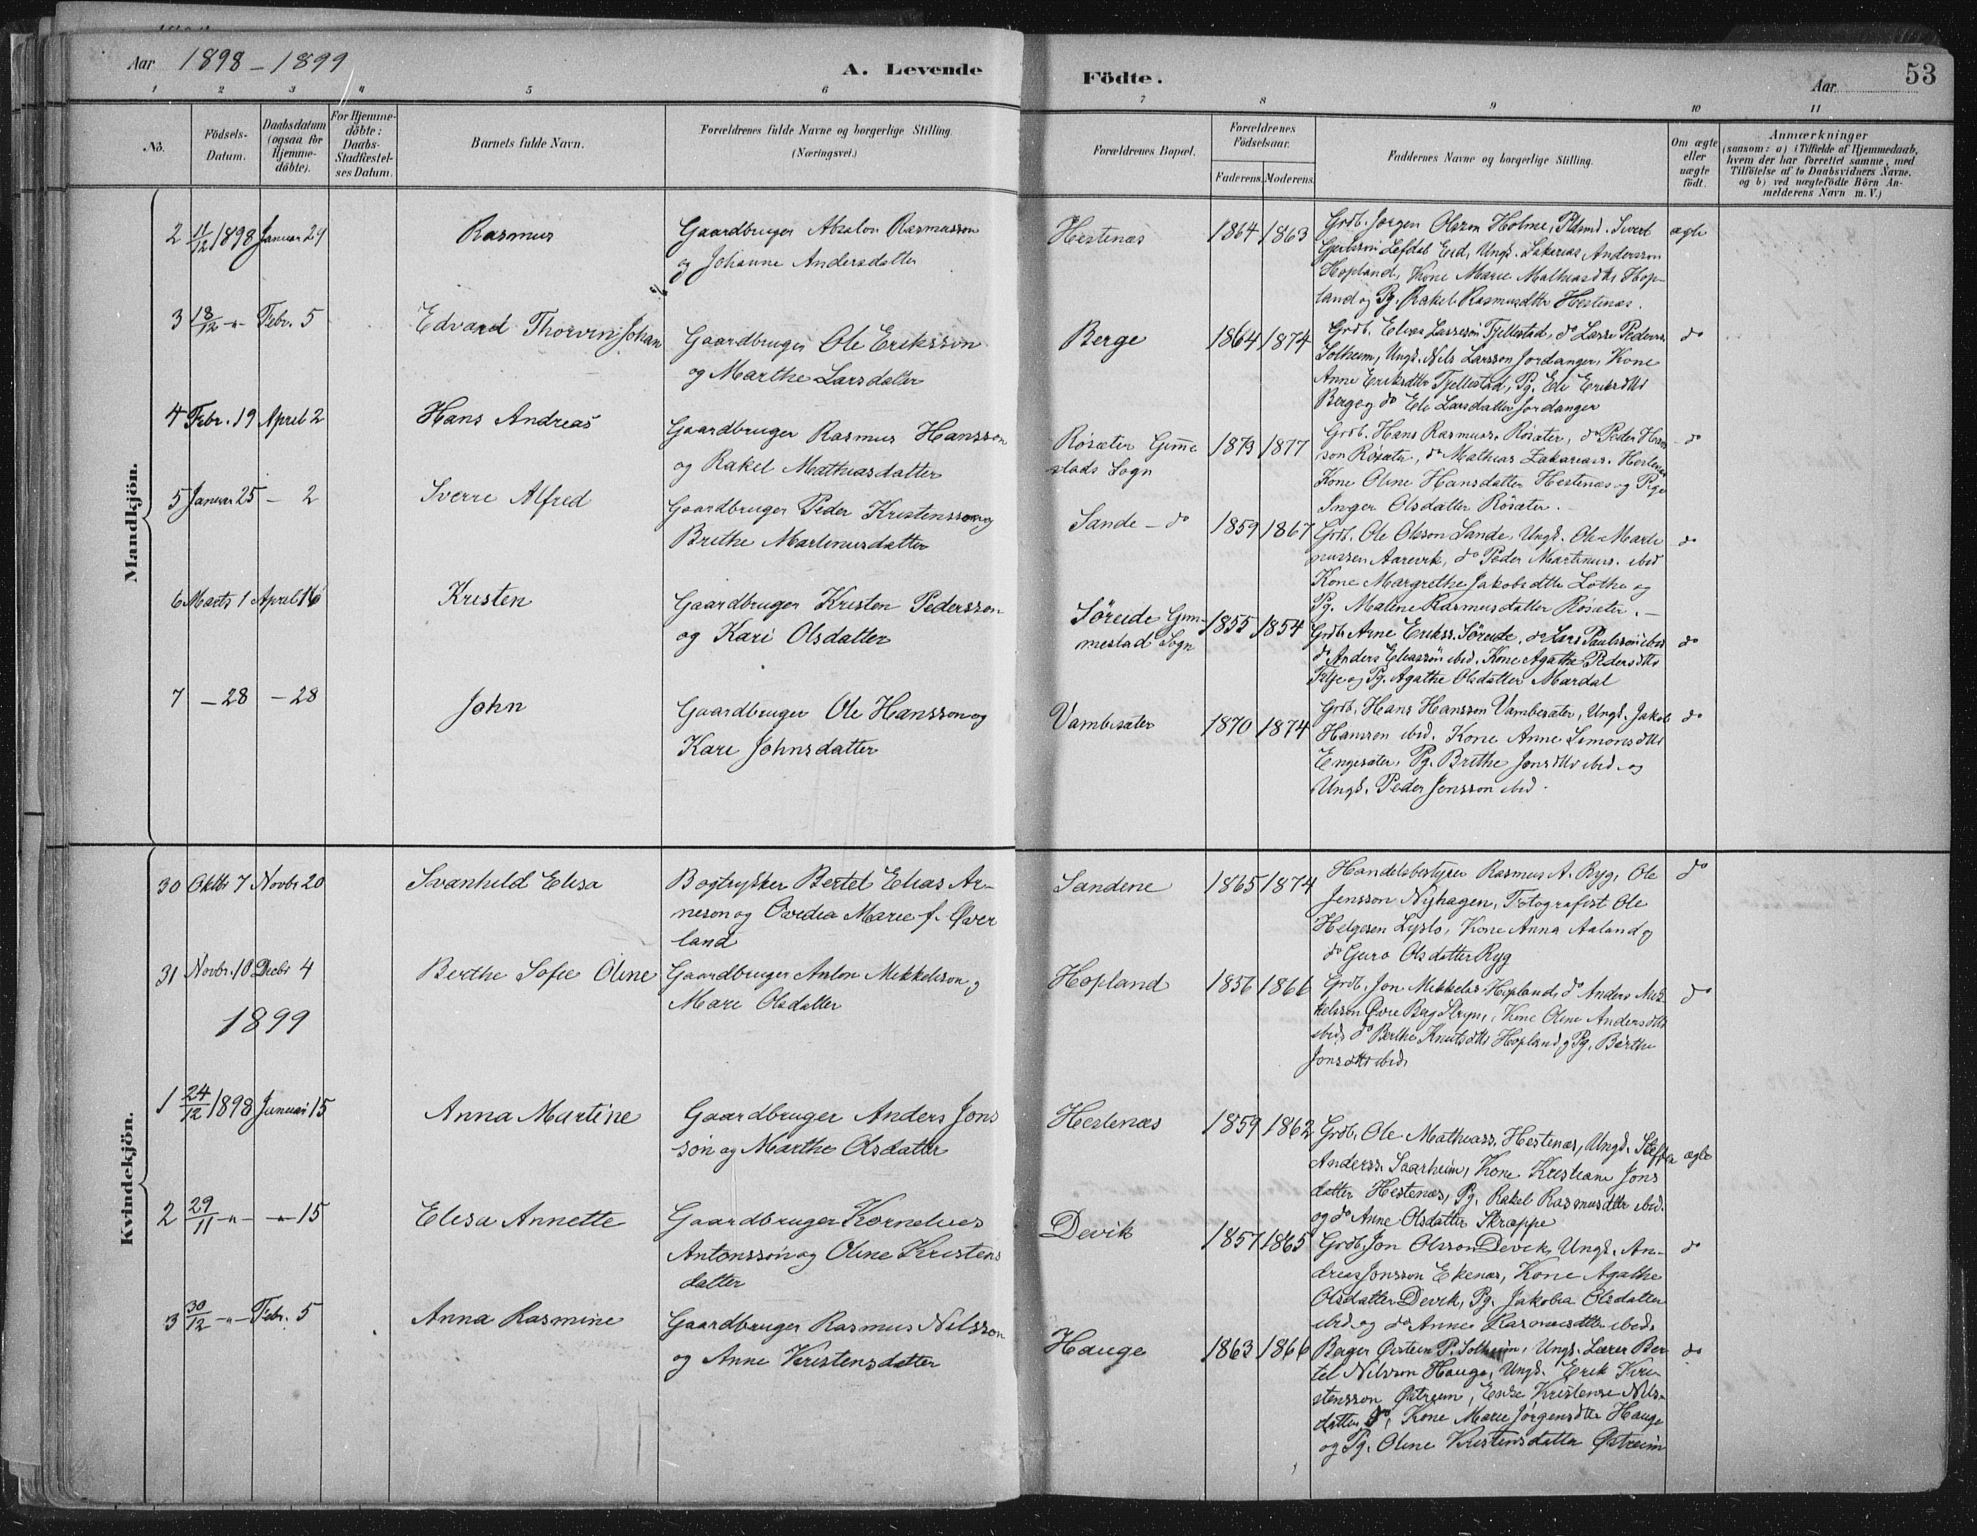 Aar 1898-1899
A. Levende
Födte.
Aar
53
1 2 3 4 5 6 7 8 9 10 11
No.
Födsels-
Datum.
Daabsdatum
(ogsaa for
Hjemme-
döbte).
For Hjemme-
döbte:
Daabs-
Stadfæstel-
ses Datum.
Barnets fulde Navn.
Forældrenes fulde Navne og borgerlige Stilling.
(Næringsvei.)
Forældrenes Bopæl.
Forældrenes
Födselsaar.
Faderens. Moderens.
Faddernes Navne og borgerlige Stilling.
Om ægte
eller
uægte
födt.
Anmærkninger
(saasom: a) i Tilfælde af Hjemmedaab,
hvem der har forrettet samme, med
Tilföielse af to Daabsvidners Navne,
og b) ved uægtefödte Börn An-
melderens Navn m. V.)
Mandkjön.
2 11/12 1898 Januar 29 Rasmus
Gaardbruger Absalon Rasmusson
og Johanne Andersdatter
Hestenæs 1864 1863
Grdb. Jørgen Olsson Holme, Sivert
Lefdal Eid, Ungk. Zakarias Andersson
Hopland, Kone Marie Mathiasdtr Hop-
land og Pg. Rakel Rasmusdtr Hestenæs.
ægte
3 18/12 -"- Febr. 5 Edvard Thorvin Johan
Gaardbruger Ole Eriksson
og Marthe Larsdatter
Berge 1864 1874
Grdb. Elias Lassesøn Fjellestad, do Lasse Peders.
Solheim, Ungk. Nils Larsson Jordanger, Kone
Anne Eriksdtr Fjellestad, Pg. Eli Eriksdtr
Berge og do Eli Larsdatter Jordanger
do
4 Febr. 19 April 2 Hans Andreas
Gaardbruger Rasmus Hansson
og Rakel Mathiasdatter
Røsæter Gimme
stads Sogn
1873 1877
Grdb. Hans Rasmuss. Røsæter, do Peder Hans
son Røsæter, do Mathias Zakariass. Hestenæs
Kone Oline Hansdatter Hestenæs og Pige
Inger Olsdatter Røsæter.
do
5 Januar 25 - 2 Sverre Alfred
Gaardbruger Peder Kristensson og
Brithe Martinusdatter
Sande - do 1859 1867
Grdb. Ole Olsson Sande, Ungk. Ole Marti
nussen Aarevik, do Peder Martinuss. ibid
Kone Margrethe Jakobsdtr Lothe og
Pg. Maline Rasmusdatter Røsæter.
do
6 Marts 1 April 16 Kristen
Gaardbruger Kristen Pedersson
og Kari Olsdatter
Søreide Gim-
mestad Sogn
1855 1854
Grdb. Arne Erikss. Søreide, do Lars Paulsson ibid
do Anders Eliassøn ibid. Kone Agathe Pedersdtr
og Pg. Agathe Olsdatter Mardal
do
7 - 28 - 28 John
Gaardbruger Ole Hansson og
Kari Johnsdatter
Vambesæter 1870 1874
Grdb. Hans Hansson Vambesæter, Ungk. Jakob
Hansson ibid. Kone Anne Simonsdtr
Engesæter, Pg. Brithe Jonsdtr ibid. og
Ungk. Peder Jonsson ibid.
do
Kvindekjön.
30 Oktbr 7 Novbr 20 Svanhild Elisa
Bogtrykker Bertel Elias Ar-
neson og Ovedia Marie f. Øver
land
Sandene 1865 1874
Handelsbestyrer Rasmus A. Ryg, Ole
Jensson Nyhagen, Fotografist Ole
Helgesen Lyslo, Kone Anna Aaland og
do Guro Olsdatter Ryg
do
31 Novbr. 10 Decbr 4 Berthe Sofie Oline
Gaardbruger Anton Mikkelson og
Mari Olsdatter
Hopland 1856 1866
Grdb. Jon Mikkelss. Hopland, do Anders Mik
kelsson Øvre Berg Stryn, Kone Oline Andersdtr
ibid, do Berthe Knutsdtr Hopland og Pg. Berthe
Jonsdtr ibid.
do
1899
1 24/12 1898 Januar 15 Anna Martine
Gaardbruger Anders Jons
søn og Marthe Olsdatter
Hestenæs 1859 1862
Grdb. Ole Mathiass. Hestenæs, Ungk. Steffen
Anderss. Saarheim, Kone Kristiane Jons
datter Hestenæs, Pg. Rakel Rasmusdtr ibid.
og do Anne Olsdatter Skrøppe
ægte
2 29/11 -"- -"- 15 Elisa Annette
Gaardbruger Kornelius
Antonssøn og Oline Kristens
datter
Devik 1857 1865
Grdb. Jon Olsson Devik, Ungk. An-
dreas Jonsson Ekenæs, Kone Agathe
Olsdatter Devik, Pg. Jakoba Olsdatter
ibid. og do Anne Rasmusdtr ibid.
do
3 30/12 -"- Febr. 5 Anna Rasmine
Gaardbruger Rasmus Nilsson
og Anne Kristensdatter
Hauge 1863 1866
Bager Østein P. Solheim, Ungk. Lærer Ber
tel Nilsson Hauge, Ungk. Erik Kri-
stensson Østreim, Enke Kristense Nils-
datter do, Kone Marie Jørgensdtr Hauge
og Pg. Oline Kristensdatter Østreim
do